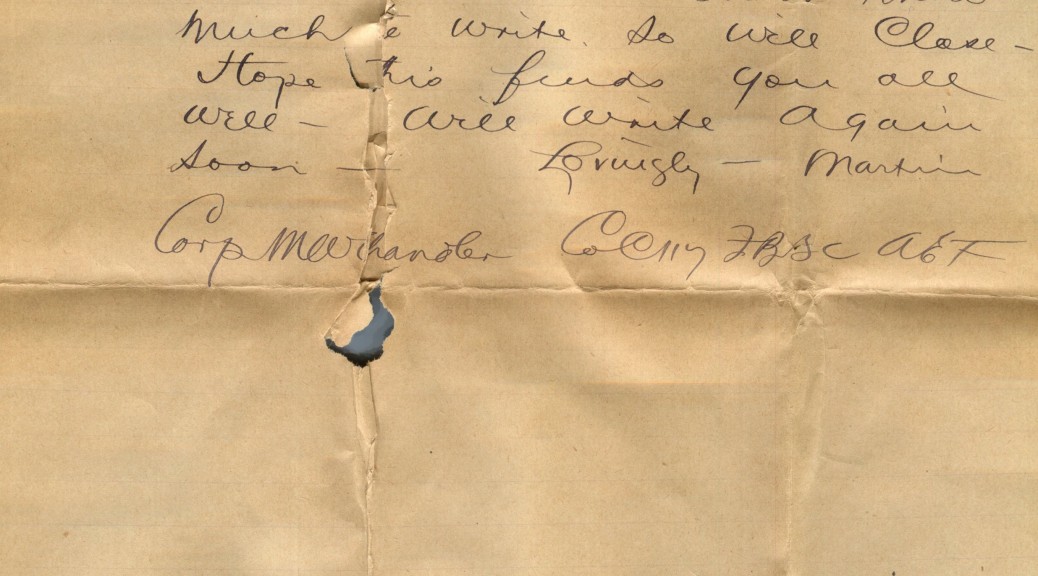 Much to write. So will Close -
Hope this finds you all
well - Will write Again
soon - Lovingly - Martin
Corp MW Chandler Co C 117 FBSC AEF